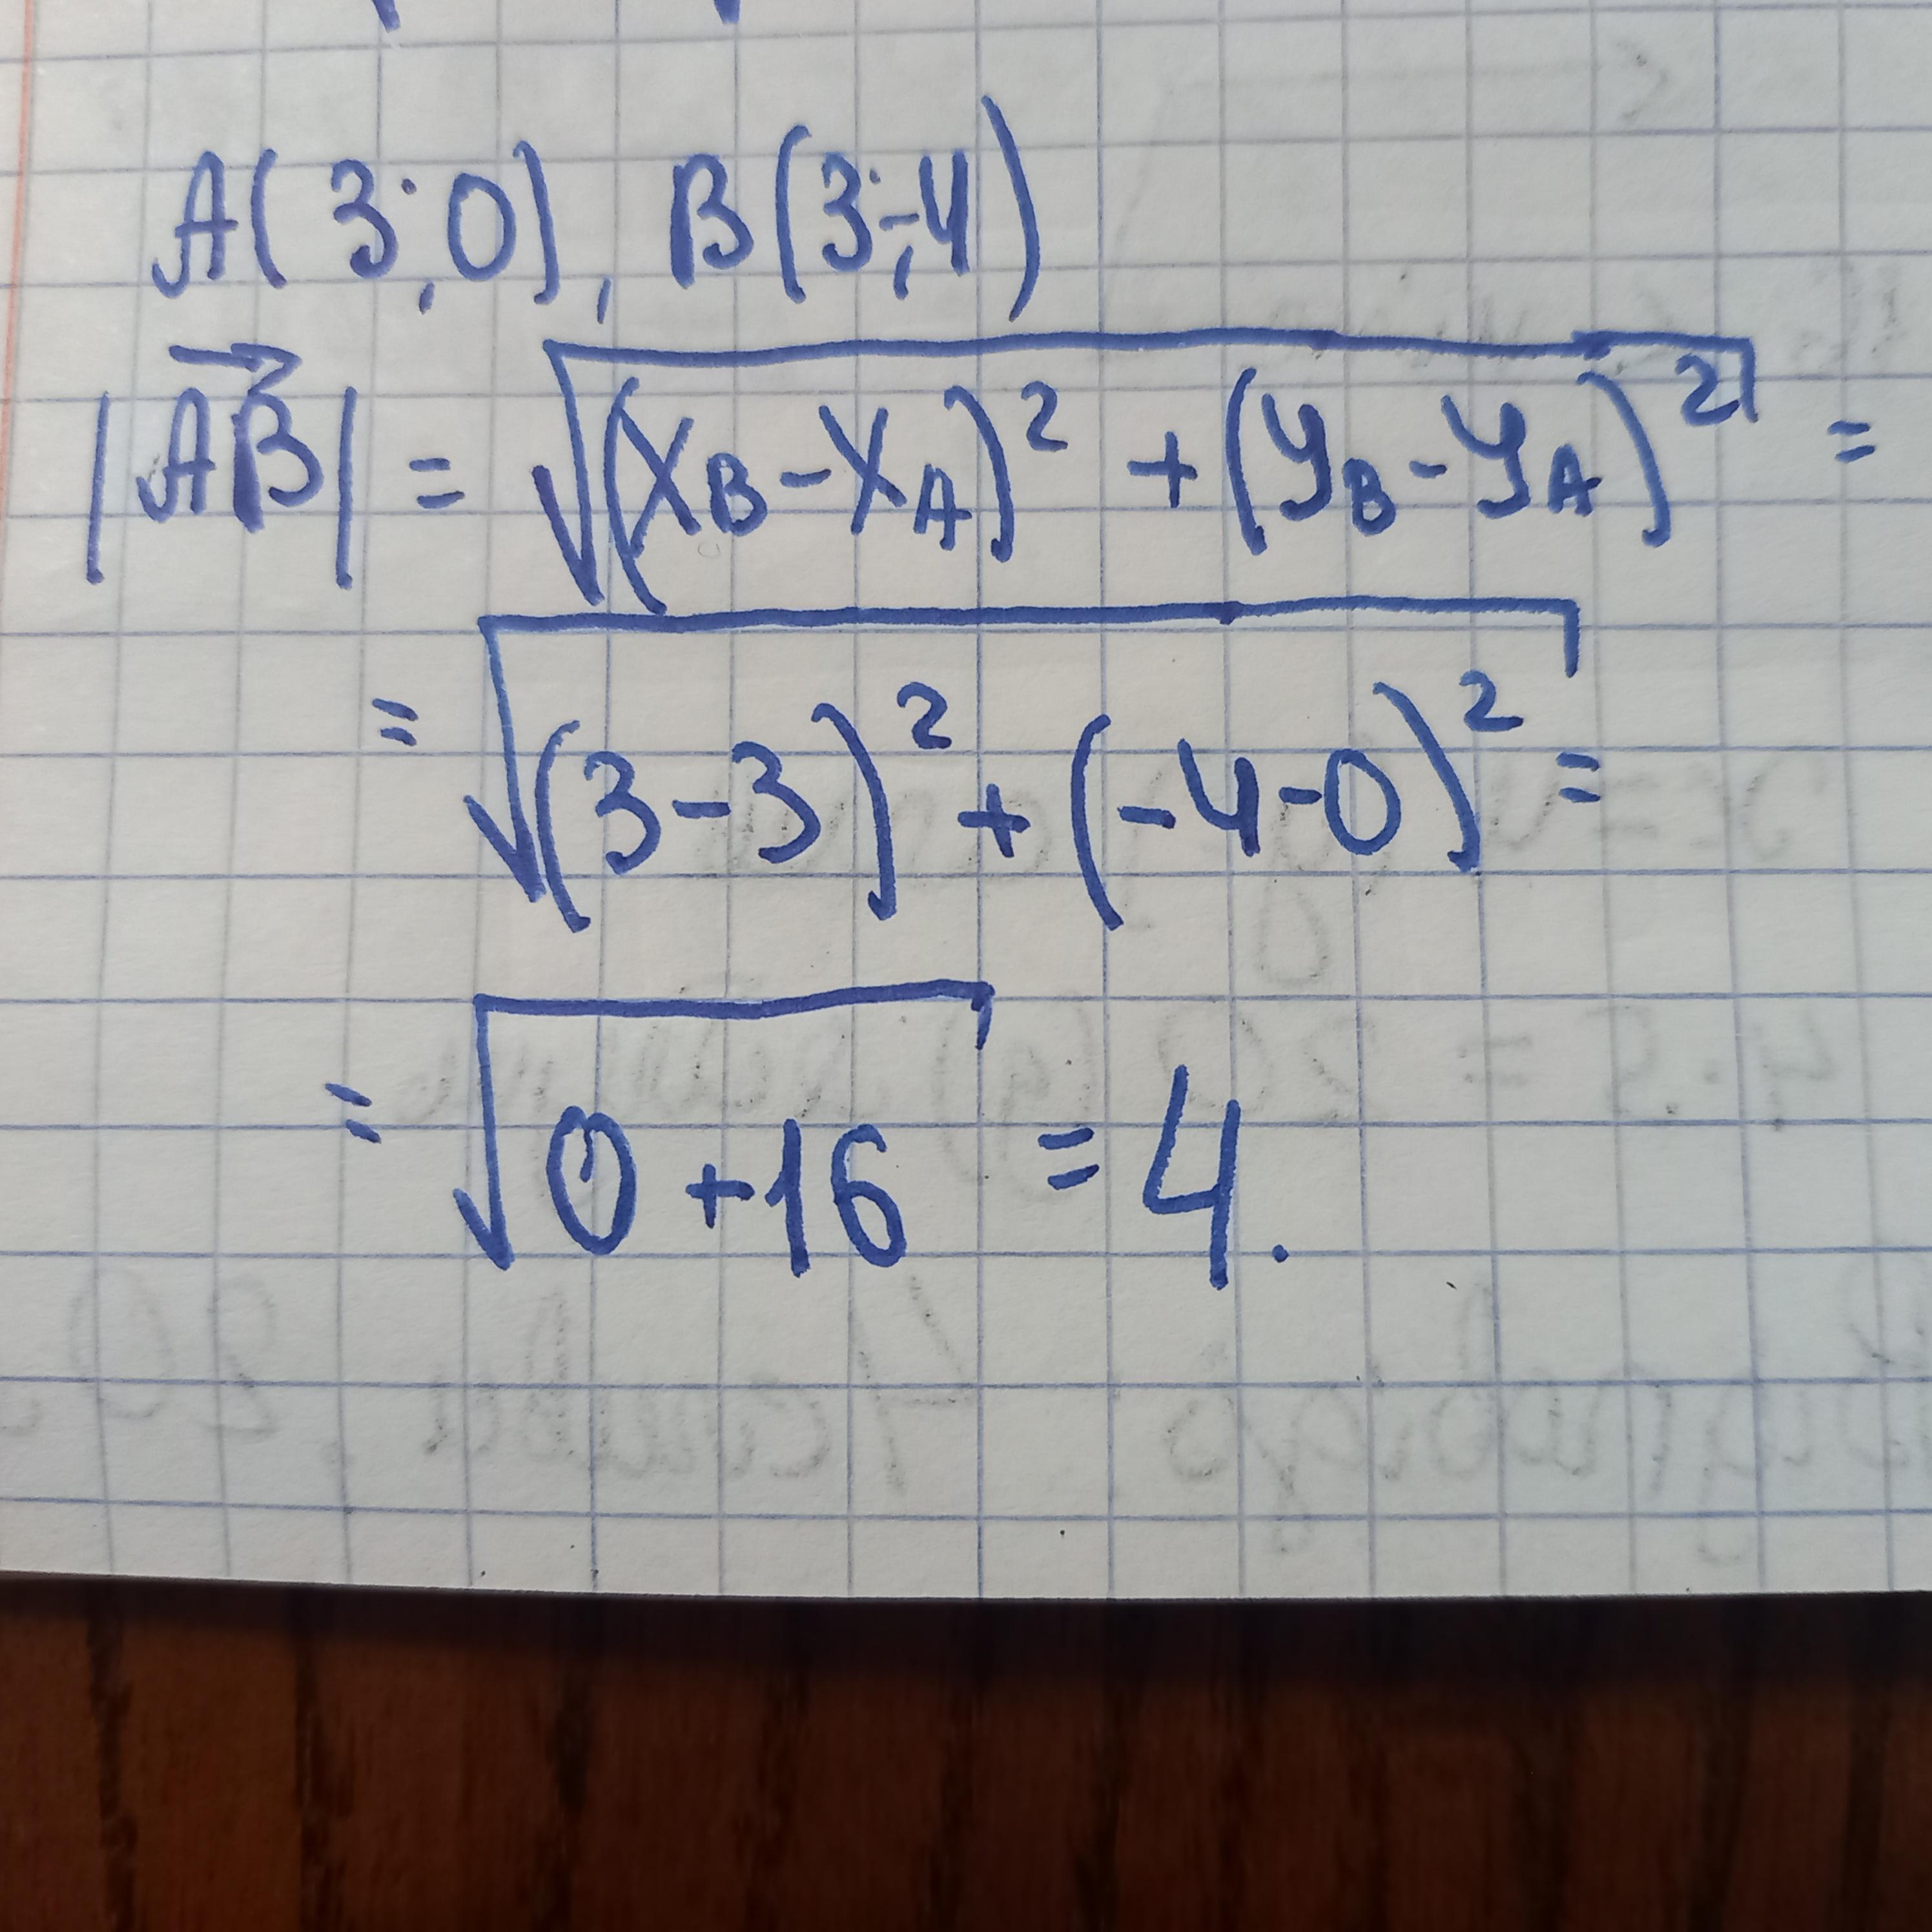 A(3;0), B(3;-4)
|AB| = √(x_B-x_A)² + (y_B-y_A)² =
= √(3-3)² + (-4-0)² =
= √0+16 = 4.